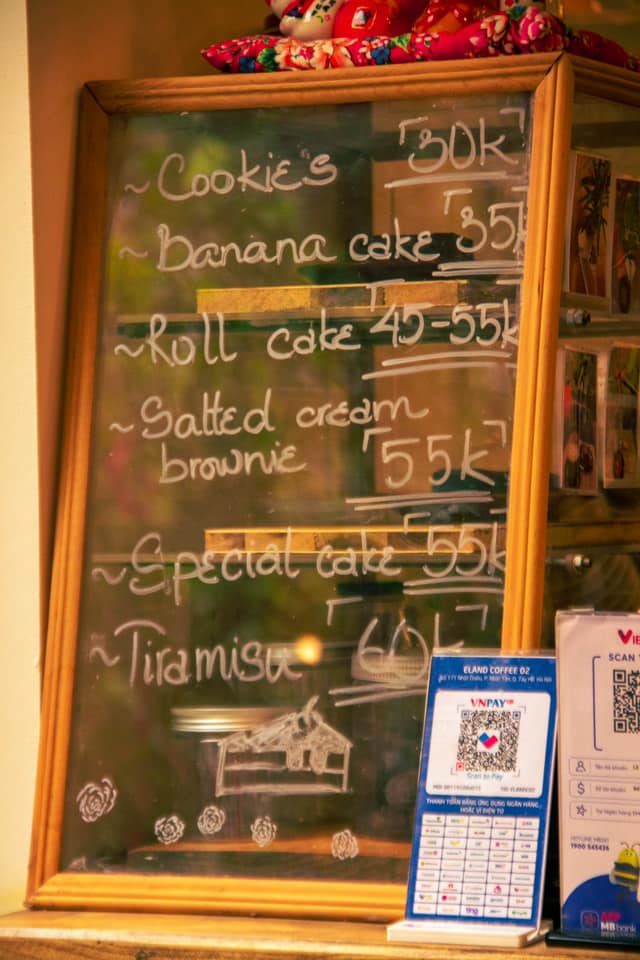 ~Cookie's 30k
~Banana cake 35k
~Roll cake 45-55k
~Salted cream
brownie 55k
~Special cake 55k
~Tiramisu 60k
ELAND COFFEE 02
VNPAY
Scan to Pay
THANH TOÁN BẰNG ỨNG DỤNG NGÂN HÀNG
HOẶC VÍ ĐIỆN TỬ
VIE
SCAN
Tên tài khoản
Số tài khoản
HOTLINE MBKH
1900 545426
APP
MBbank